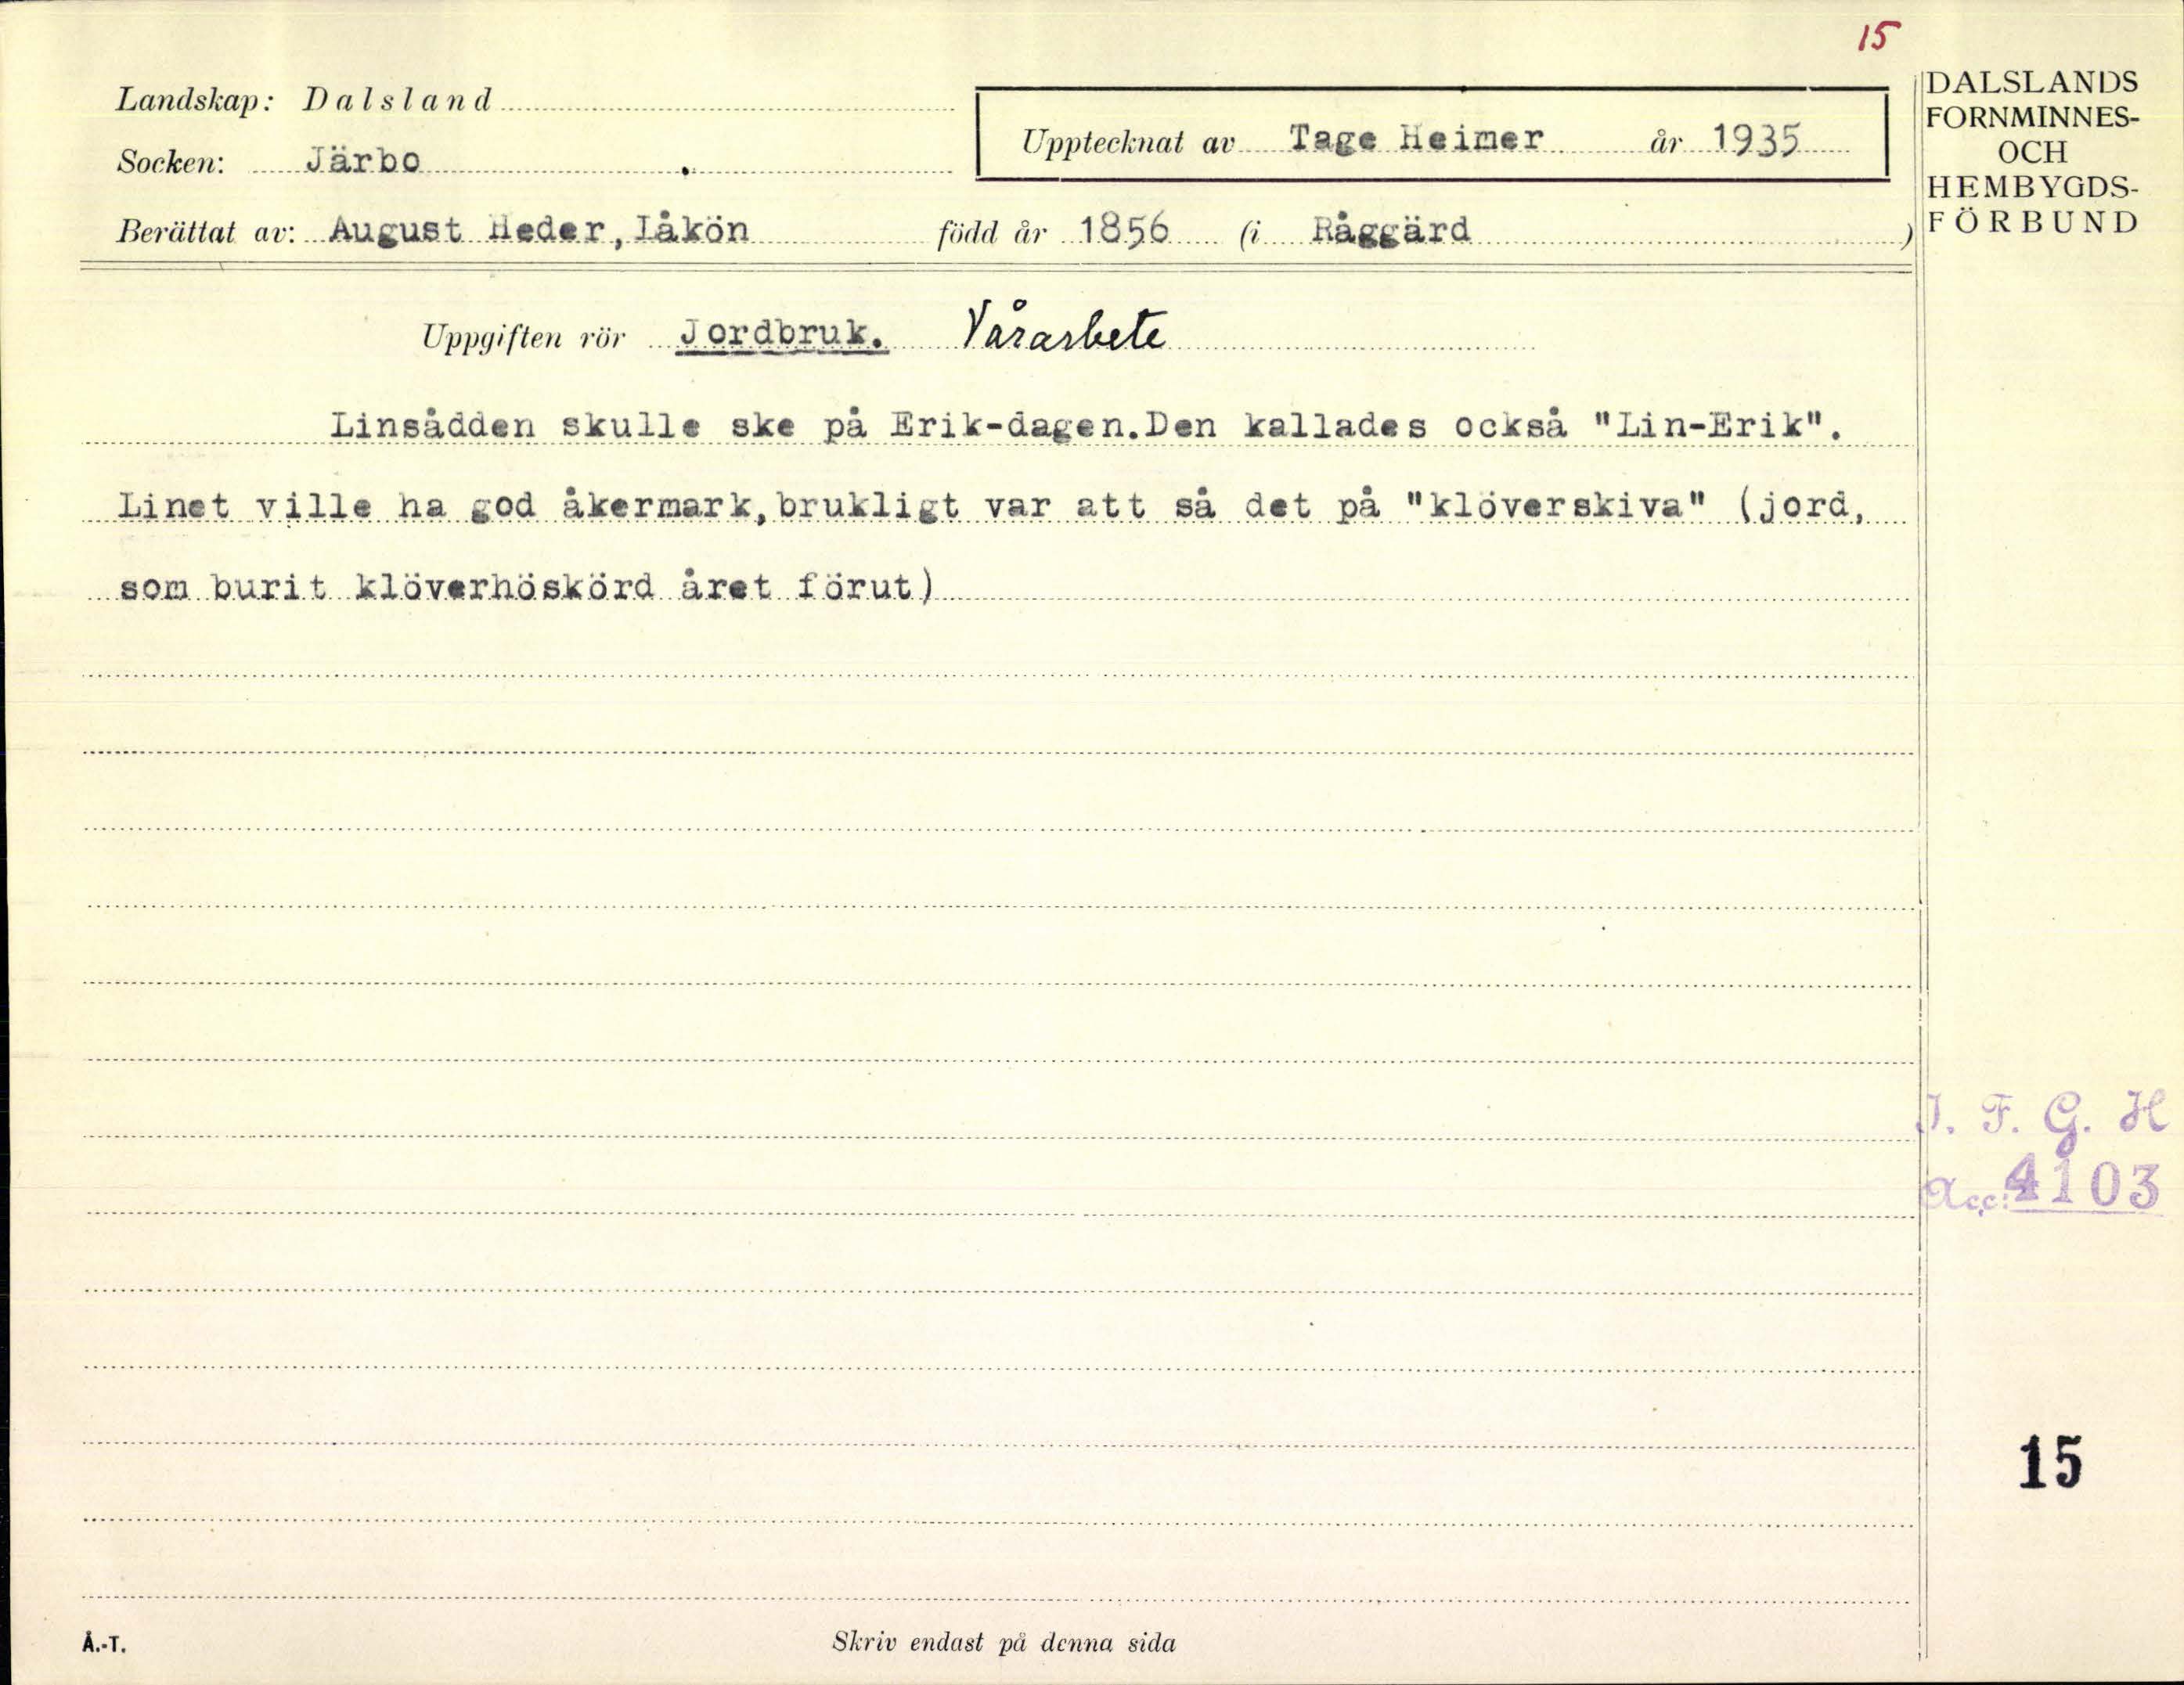 15
Landskap: Dalsland
Socken: Järbo
Upptecknat av Tage Heimer år 1935
Berättat av: August Heder, Låkön född år 1856 (i Råggärd )
DALSLANDS
FORNMINNES-
OCH
HEMBYGDS-
FÖRBUND
Uppgiften rör Jordbruk. Vårarbete
Linsådden skulle ske på Erik-dagen.Den kallades också "Lin-Erik".
Linet ville ha god åkermark,brukligt var att så det på "klöverskiva" (jord,
som burit klöverhöskörd året förut)
I. F. G. H
Acc: 4103
15
Å.-T.
Skriv endast på denna sida